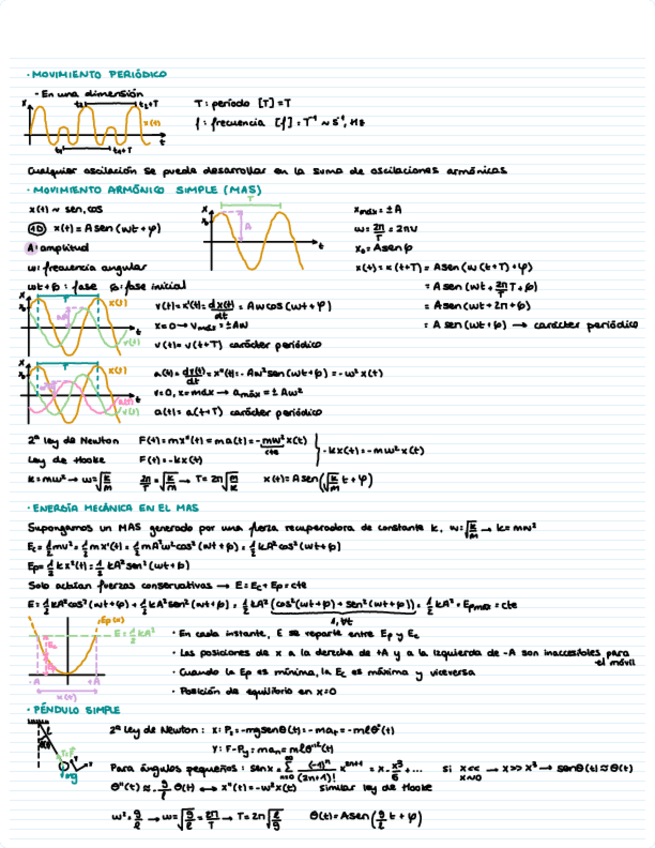 · MOVIMIENTO PERIÓDICO
- En una dimensión
x t₂ t₂+T x(t) t₁ t₁+T t
T: período [T]=T
f: frecuencia [f]=T⁻¹ ~ s⁻¹, Hz
Cualquier oscilación se puede desarrollar en la suma de oscilaciones armónicas
· MOVIMIENTO ARMÓNICO SIMPLE (MAS)
x(t) ~ sen, cos
1D x(t) = A sen(wt + φ)
A: amplitud
w: frecuencia angular
wt+φ: fase φ: fase inicial
x T x₀ A t
xmáx = ±A
w = 2π/T = 2πν
x₀ = A sen φ
x(t) = x(t+T) = A sen(w(t+T)+φ)
= A sen(wt + 2π/T T + φ)
= A sen(wt + 2π + φ)
= A sen(wt + φ) → carácter periódico
x T x(t) v(t) t
v(t) = x'(t) = dx(t)/dt = Aw cos(wt + φ)
x=0 → vmáx = ±Aw
v(t) = v(t+T) carácter periódico
x T x(t) a(t) v(t) t
a(t) = dv(t)/dt = x''(t) = -Aw² sen(wt+φ) = -w² x(t)
v=0, x=máx → amáx = ± Aw²
a(t) = a(t+T) carácter periódico
2ª ley de Newton F(t) = mx''(t) = ma(t) = -mw² x(t)
cte
Ley de Hooke F(t) = -kx(t)
-kx(t) = -mw² x(t)
k = mw² → w = √k/m 2π/T = √k/m → T = 2π√m/k x(t) = A sen(√k/m t + φ)
· ENERGÍA MECÁNICA EN EL MAS
Supongamos un MAS generado por una fuerza recuperadora de constante k, w = √k/m → k = mw²
Ec = 1/2 mv² = 1/2 mx'(t) = 1/2 mA²w² cos²(wt + φ) = 1/2 kA² cos²(wt+φ)
Ep = 1/2 kx²(t) = 1/2 kA² sen²(wt+φ)
Solo actúan fuerzas conservativas → E = Ec + Ep = cte
E = 1/2 kA² cos²(wt+φ) + 1/2 kA² sen²(wt+φ) = 1/2 kA² (cos²(wt+φ) + sen²(wt+φ)) = 1/2 kA² = Epmáx = cte
1, ∀t
Ep(x) E = 1/2 kA² -A +A x(t)
· En cada instante, E se reparte entre Ep y Ec
· Las posiciones de x a la derecha de +A y a la izquierda de -A son inaccesibles para el móvil
· Cuando la Ep es mínima, la Ec es máxima y viceversa
· Posición de equilibrio en x=0
· PÉNDULO SIMPLE
2ª ley de Newton: x: Pₓ = -mg sen θ(t) = -maₜ = -mlθ''(t)
y: F-Py = maₙ = mlθ'²(t)
Para ángulos pequeños: sen x = ∞ Σ n=0 (-1)ⁿ/(2n+1)! x²ⁿ⁺¹ = x - x³/6 + ... si x<< x~0 → x >> x³ → senθ(t) ≈ θ(t)
θ''(t) ≈ -g/l θ(t) ↔ x''(t) = -w² x(t) similar ley de Hooke
w² = g/l → w = √g/l = 2π/T → T = 2π√l/g θ(t) = A sen(g/l t + φ)